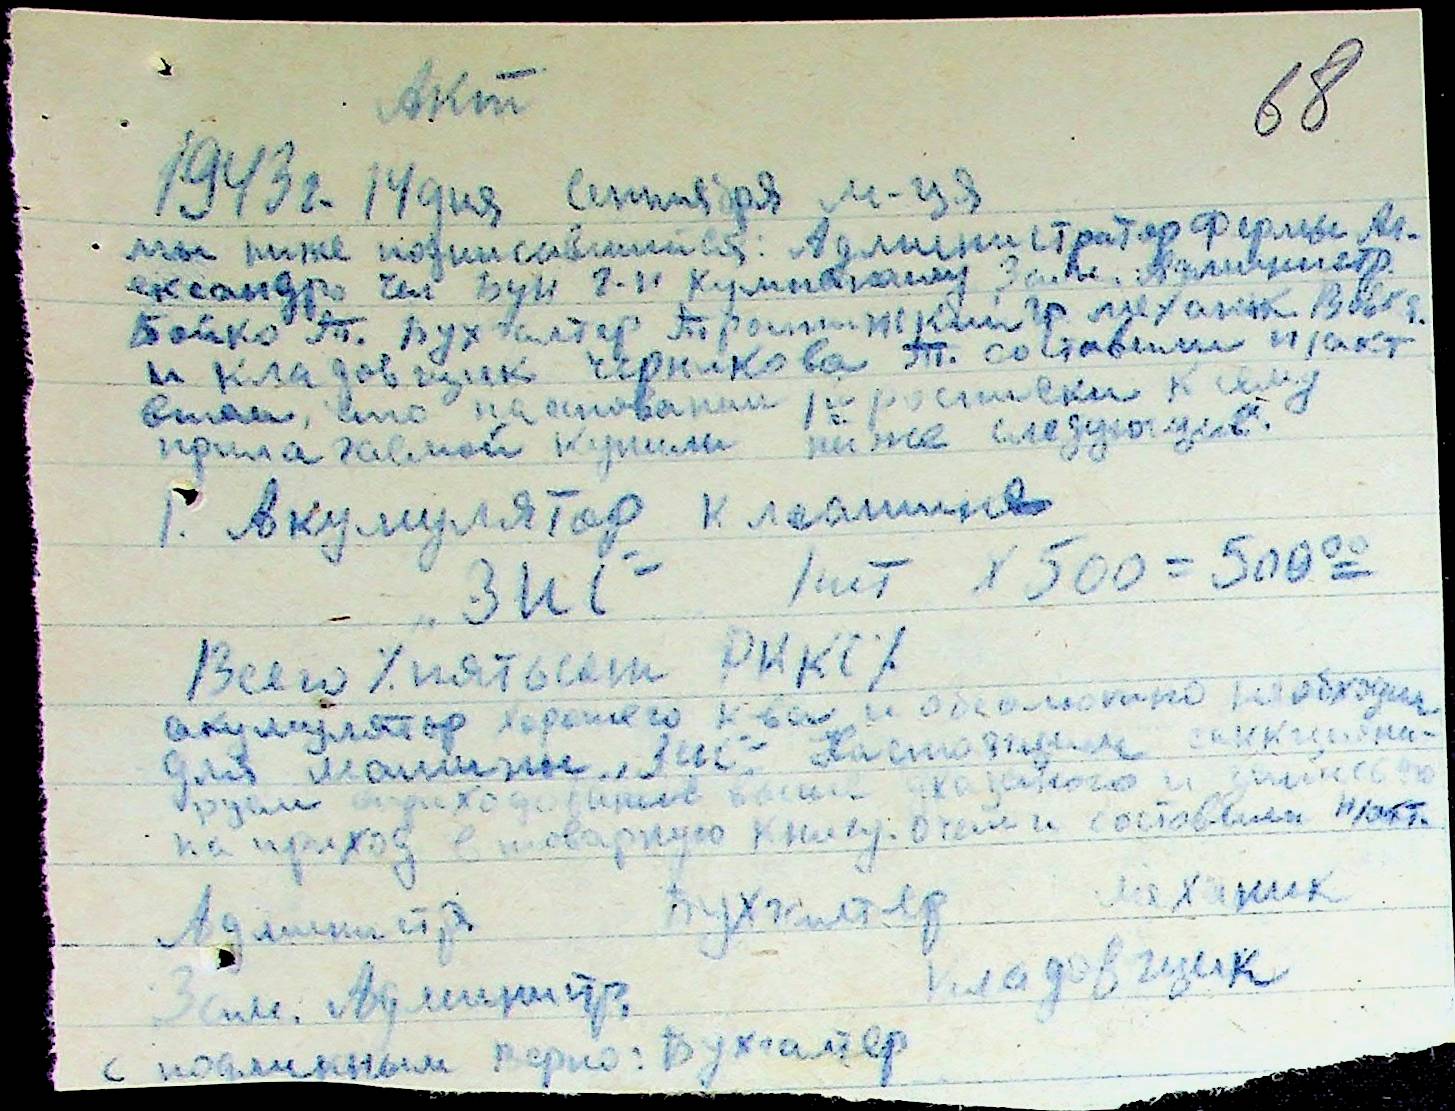 68
Акт
1943 г. 14 дня Сентября м-ця
мы ниже подписавшийся: Администратор Фермы Ал-
ександро чел Бун г-н Зам. Администр.
Бойко Т. Бухгалтер механик
и кладовщик Черникова Т. составили н/акт
втом, что на основании росписки к сему
прилагаемой купили ниже следующие.
1. Акумулятор к машине
„ЗИС" 1 шт х 500 = 500 00
Всего /.пятьсот РККС/
акумулятор хорошего к-ва и обсолютно необходим
для машины „Зис" Настоящим санкциони-
руем оприходование выше указаного и
на приход в товарную книгу. о чем и составили н/акт.
Администр Бухгалтер механик
Зам. Администр. Кладовщик
с подлинным верно: Бухгалтер